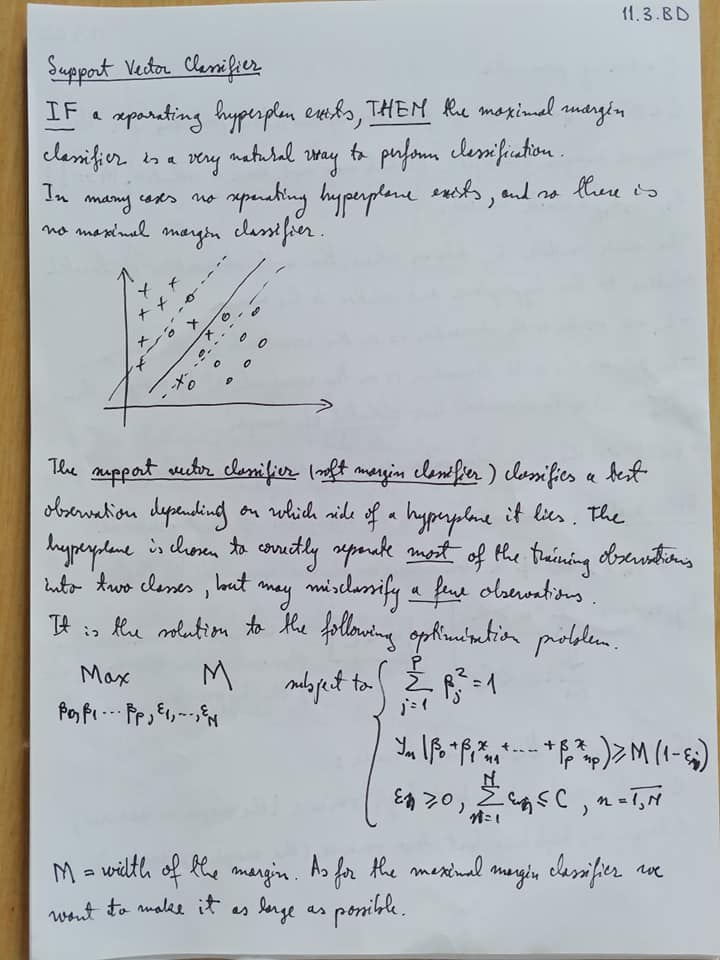 11.3.BD
Support Vector Classifier
IF a separating hyperplan exists, THEN the maximal margin
classifier is a very natural way to perform classification.
In many cases no separating hyperplane exists, and so there is
no maximal margin classifier.
The support vector classifier (soft margin classifier) classifies a test
observation depending on which side of a hyperplane it lies. The
hyperplane is chosen to correctly separate most of the training observations
into two classes, but may misclassify a few observations.
It is the solution to the following optimization problem.
Max M subject to { ∑_{j=1}^{p} β_j^2 = 1
β₀,β₁...βₚ,ε₁,...,ε_N
y_n(β₀+β₁x_{n1}+....+βₚx_{np}) ≥ M(1-ε_n)
ε_n ≥ 0, ∑_{n=1}^{N} ε_n ≤ C, n = \overline{1,N}
M = width of the margin. As for the maximal margin classifier we
want to make it as large as possible.